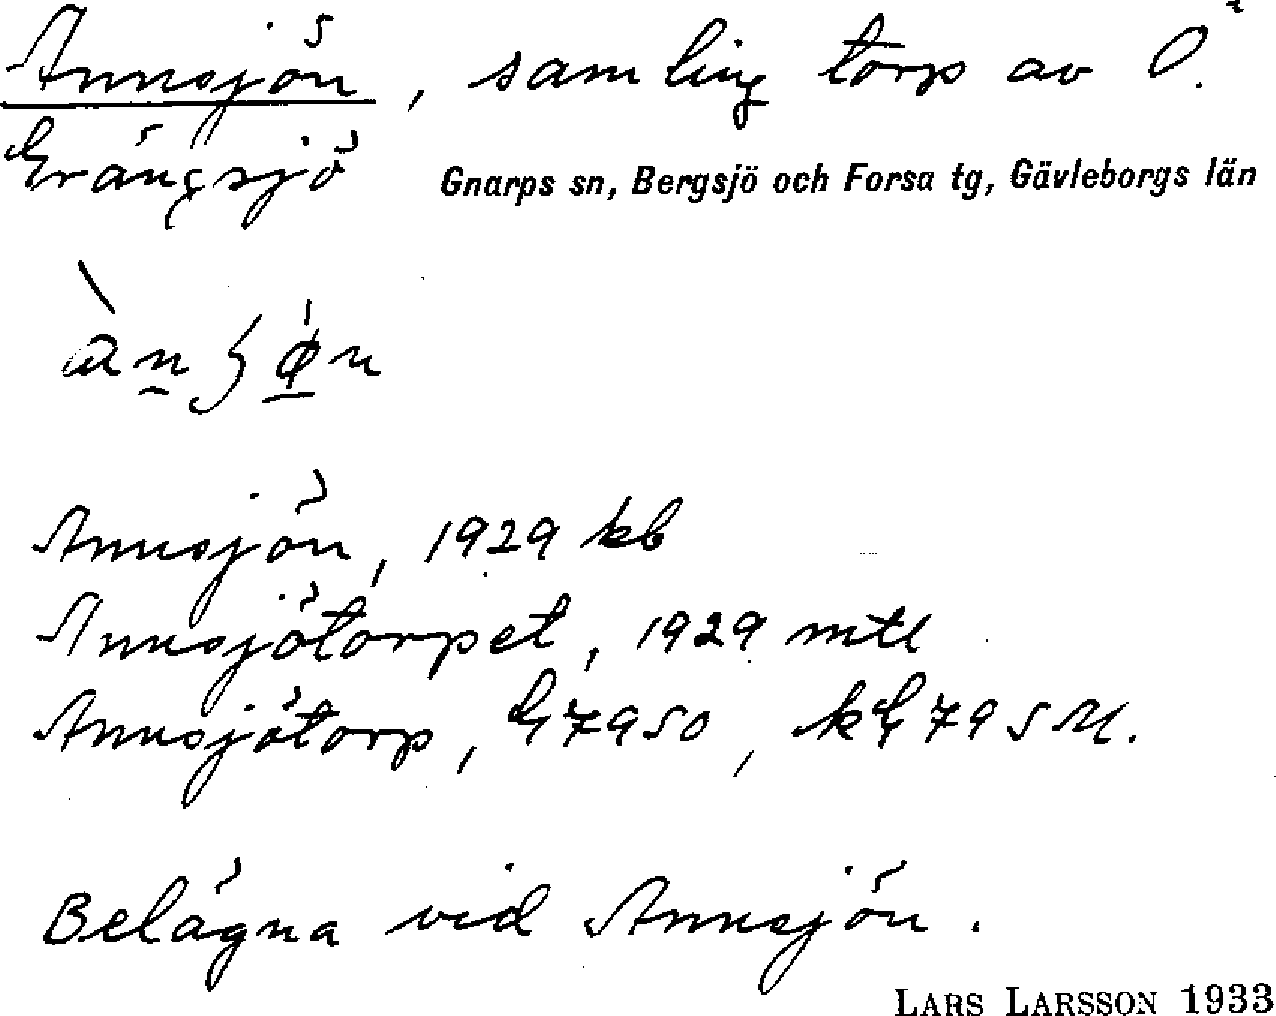 Annsjön, samling torp av Ö.
Grängsjö Gnarps sn, Bergsjö och Forsa tg, Gävleborgs län
Annsjön, 1929 kb
Annsjötorpet, 1929 mtl
Annsjötorp, G 7950, kG 79 SU.
Belägna vid Annsjön.
LARS LARSSON 1933